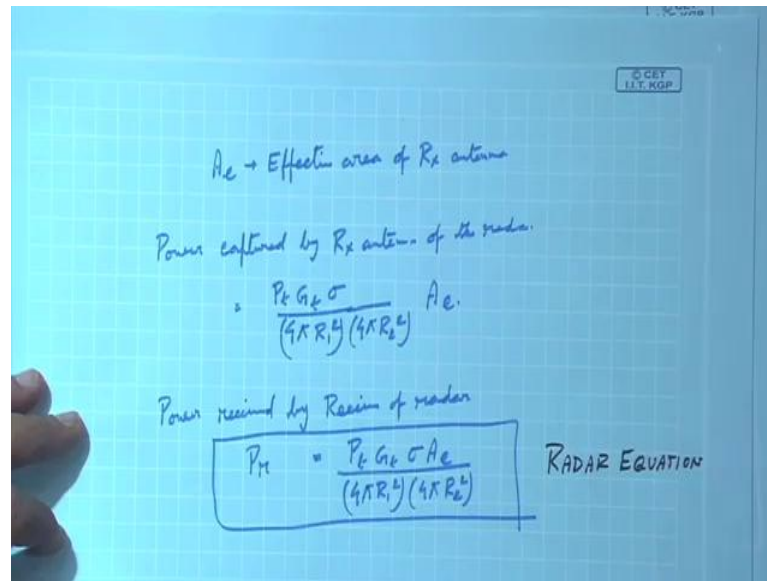 © CET
I.I.T. KGP
Ae → Effective area of Rx antenna
Power captured by Rx antenna of the radar.
= Pt Gt σ / (4πR₁²)(4πR₂²) Ae.
Power received by Receiver of radar
Pr = Pt Gt σ Ae / (4πR₁²)(4πR₂²)
RADAR EQUATION